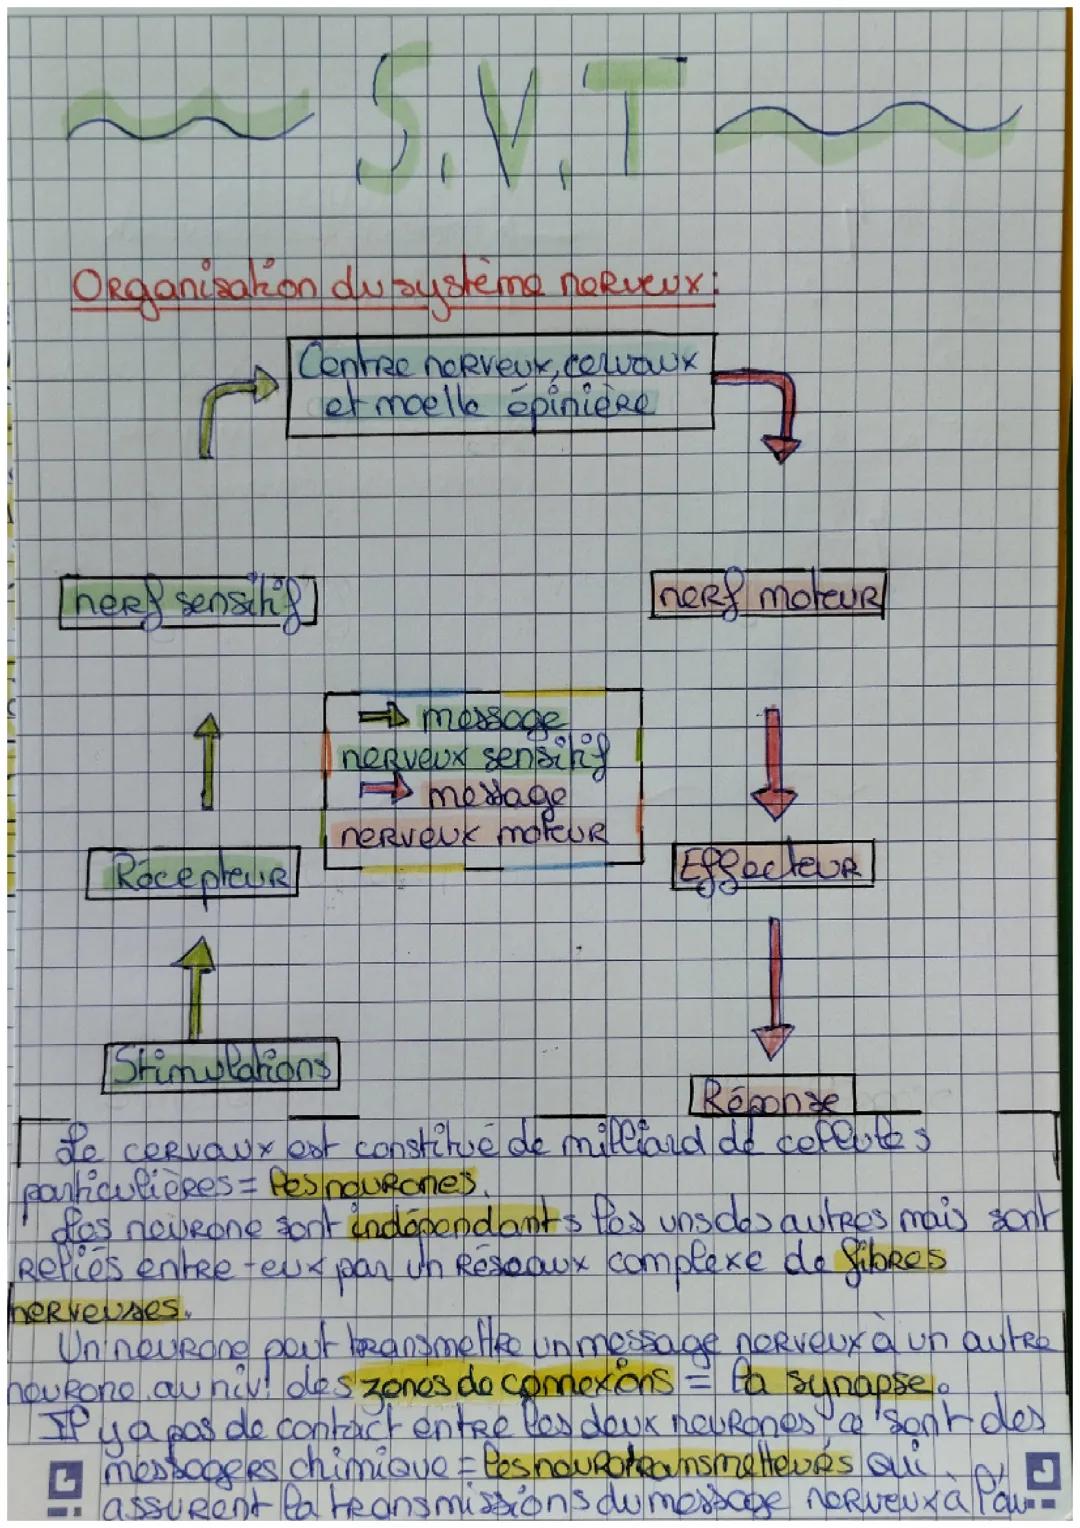 S.V.T
Organisation du système nerveux:
Centre nerveux, cervaux
et moelle épinière
nerf sensitif
nerf moteur
message
nerveux sensitif
message
nerveux moteur
Récepteur
Effecteur
Stimulations
Réponse
Le cervaux est constitué de milliard de cellules
particulières = les neurones.
Les neurone sont indépendants les uns des autres mais sont
Reliés entre-eux par un Réseaux complexe de fibres
nerveuses.
Un neurone peut transmettre un message nerveux à un autre
neurone au niv! des zones de connexions = la synapse.
Il y a pas de contact entre les deux neurones, ce sont des
messagers chimique = les neurotransmetteurs qui
assurent la transmissions du message nerveux à l'au